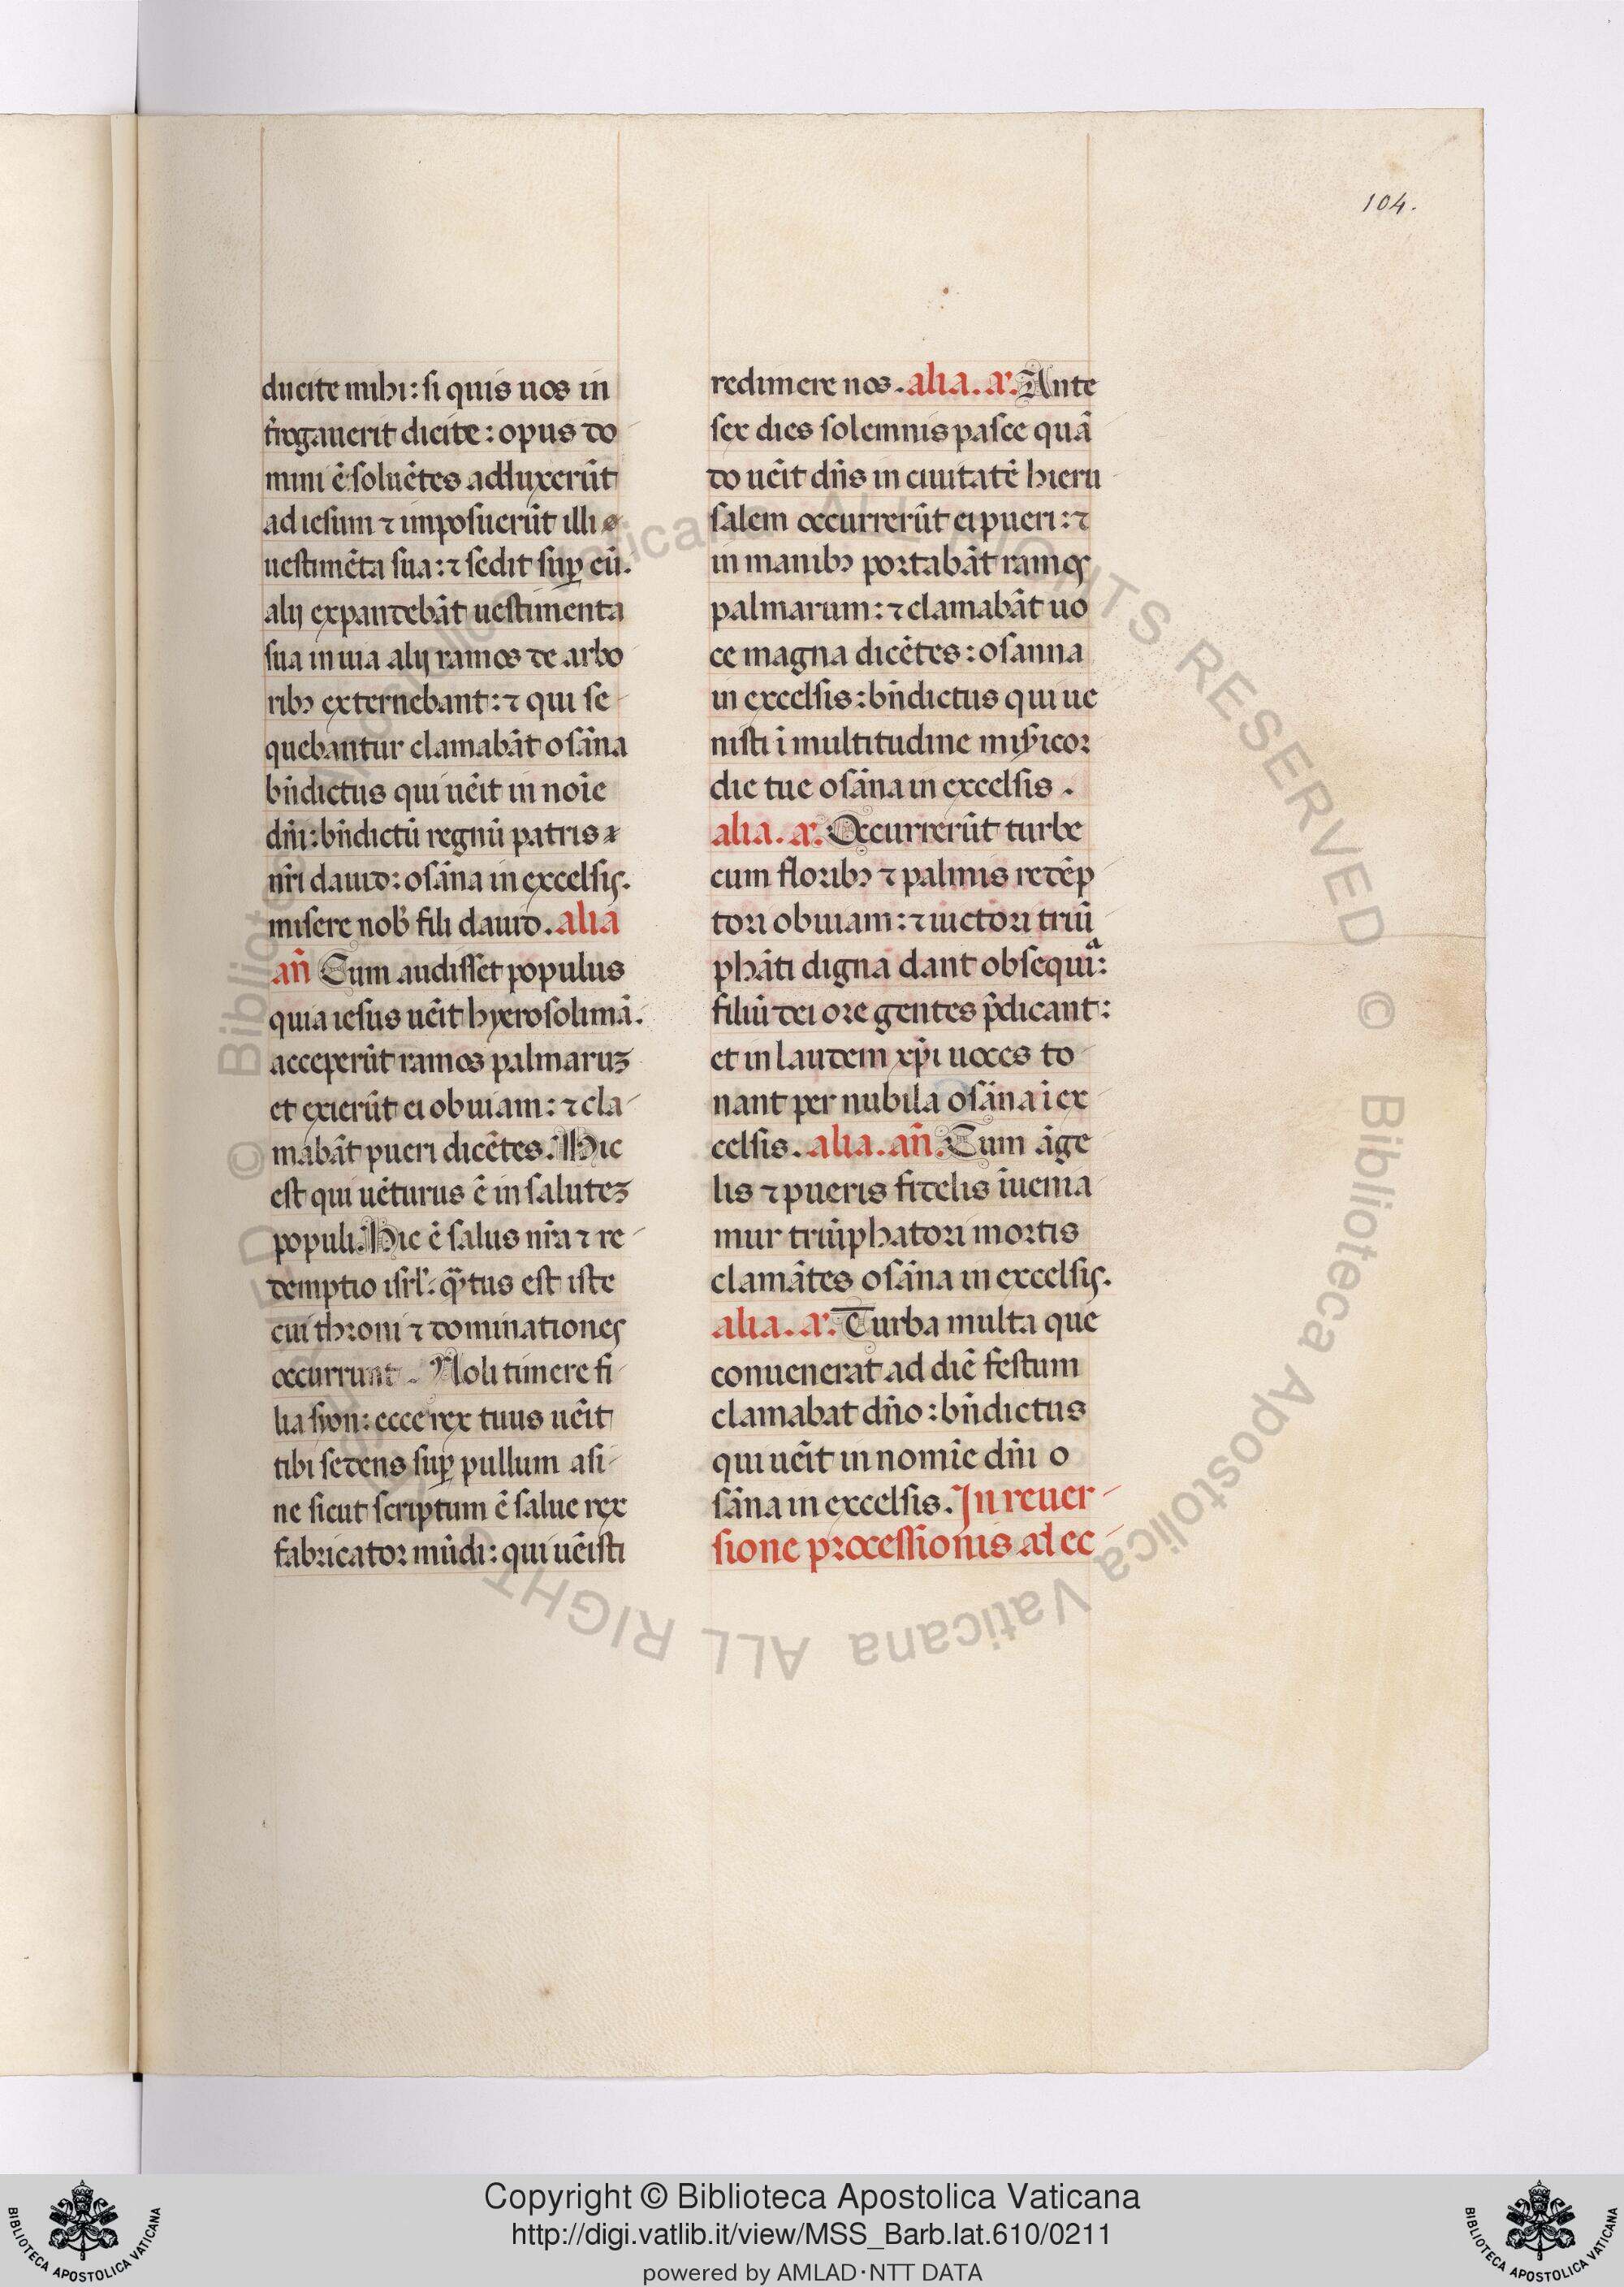 104.
ducite mihi: si quis uos in
t̄rogauerit dicite: opus do
mini ē. soluētes adduxerūt
ad iesum ⁊ imposuerūt illi
uestimēta sua: ⁊ sedit suꝑ eū.
alij expandebāt uestimenta
sua in uia alij ramos de arbo
ribꝫ externebant: ⁊ qui se
quebantur clamabāt osāna
bn̄dictus qui uēit in noīe
dn̄i: bn̄dictū regnū patris
nr̄i dauid: osāna in excelsis.
misere nob̄ fili dauid. alia
an̄ Cum audisset populus
quia iesus uēit hyerosolimā.
acceperūt ramos palmaruꝫ
et exierūt ei obuiam: ⁊ cla
mabāt pueri dicētes. Hic
est qui uēturus ē in saluteꝫ
populi. Hic ē salus nr̄a ⁊ re
demptio isrl̄: qͣ̄tus est iste
cui throni ⁊ dominationes
occurrunt. Noli timere fi
lia sion: ecce rex tuus uēit
tibi sedens suꝑ pullum asi
ne sicut scriptum ē salue rex
fabricator mūdi: qui uēisti
redimere nos. alia. a. Ante
sex dies solemnis pasce quā
do uēit dn̄s in ciuitatē hieru
salem occurrerūt ei pueri: ⁊
in manibꝫ portabāt ramos
palmarum: ⁊ clamabāt uo
ce magna dicētes: osanna
in excelsis: bn̄dictus qui ue
nisti ī multitudine mis̄icor
die tue osāna in excelsis.
alia. a. Occurrerūt turbe
cum floribꝫ ⁊ palmis redēp
tori obuiam: ⁊ uictori triū
phāti digna dant obsequiͣ:
filiū dei ore gentes p̄dicant:
et in laudem xp̄i uoces to
nant per nubila osāna ī ex
celsis. alia. an̄. Cum āge
lis ⁊ pueris fidelis īuenia
mur triūphatori mortis
clamātes osāna in excelsis.
alia. a. Turba multa que
conuenerat ad diē festum
clamabat dn̄o: bn̄dictus
qui uēit in nomīe dn̄i o
sāna in excelsis. In reuer
sione processionis ad ec
© Biblioteca Apostolica Vaticana ALL RIGHTS RESERVED © Biblioteca Apostolica Vaticana ALL RIGHTS RESERVED
Copyright © Biblioteca Apostolica Vaticana
http://digi.vatlib.it/view/MSS_Barb.lat.610/0211
powered by AMLAD·NTT DATA
BIBLIOTECA APOSTOLICA VATICANA
BIBLIOTECA APOSTOLICA VATICANA